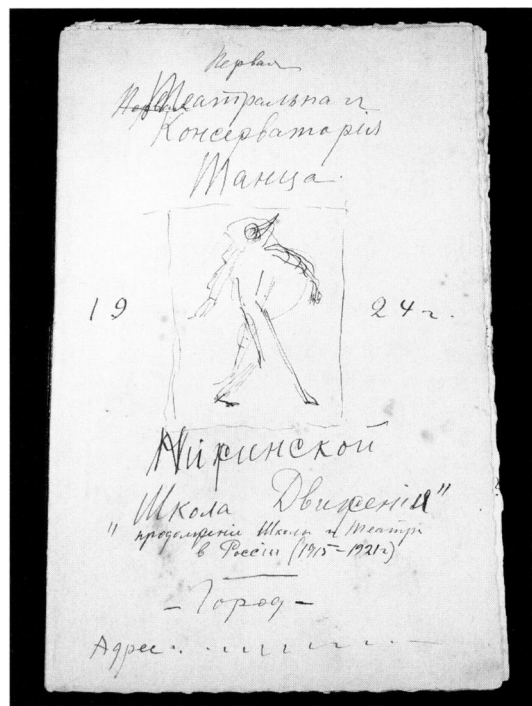 Первая
Театральная
Консерваторія
Танца.
1924 г.
Нижинской
"Школа Движенія"
продолженіе Школы и Театра
в Россіи (1915-1921 г)
- Город -
Адрес.